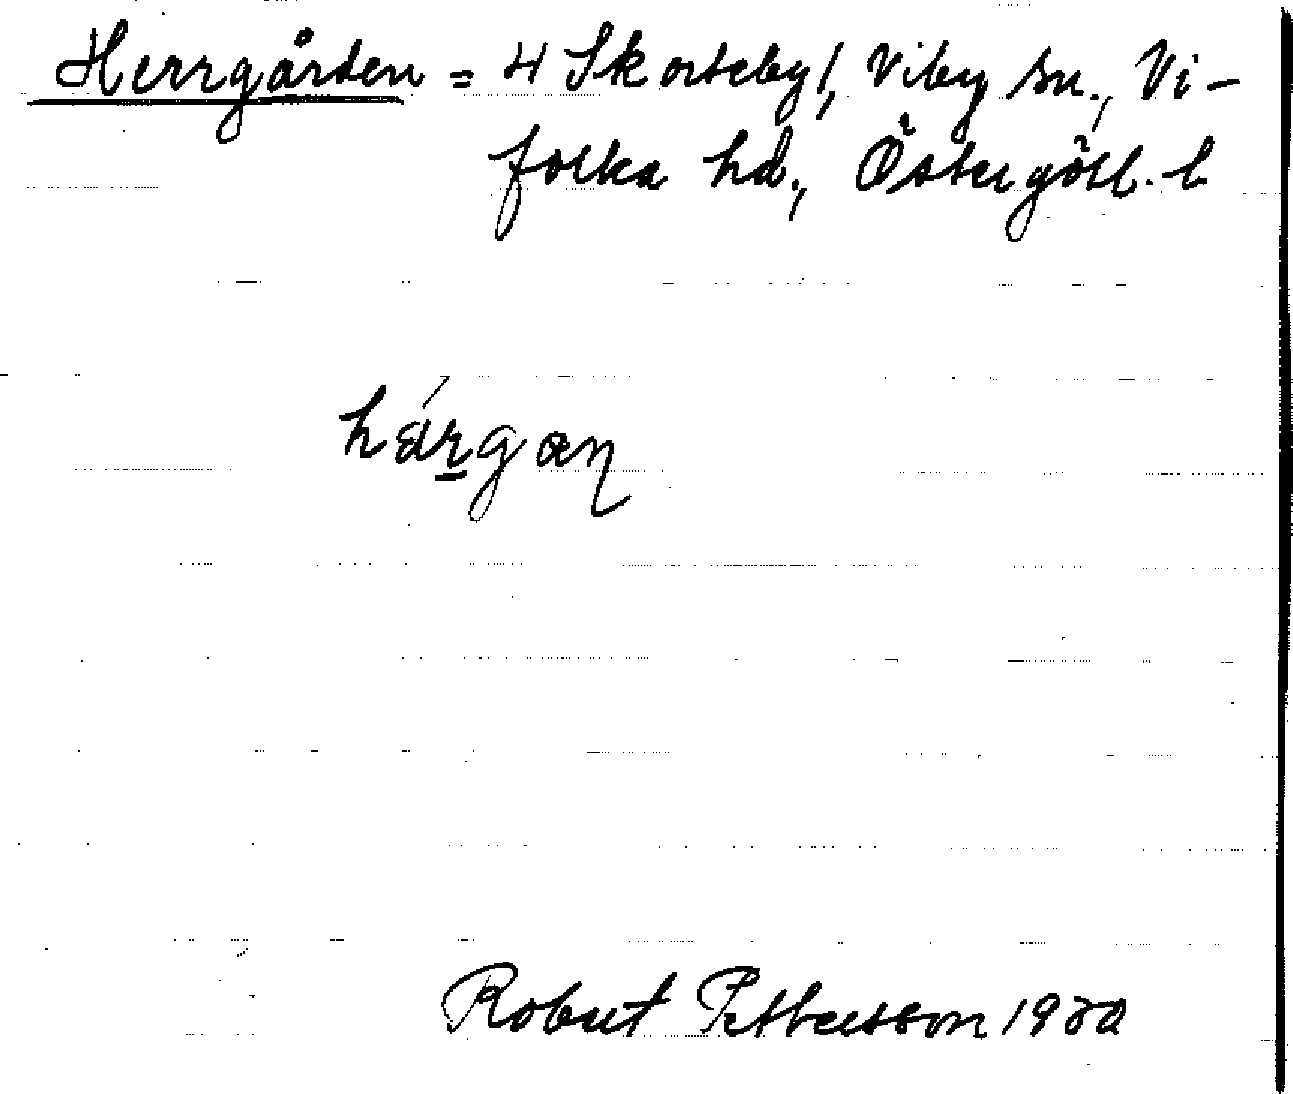 Herrgården = 4 Skorteby!, Viby sn., Vi-
folka hd., Östergötl. l
hárgan
Robert Pettersson 1930